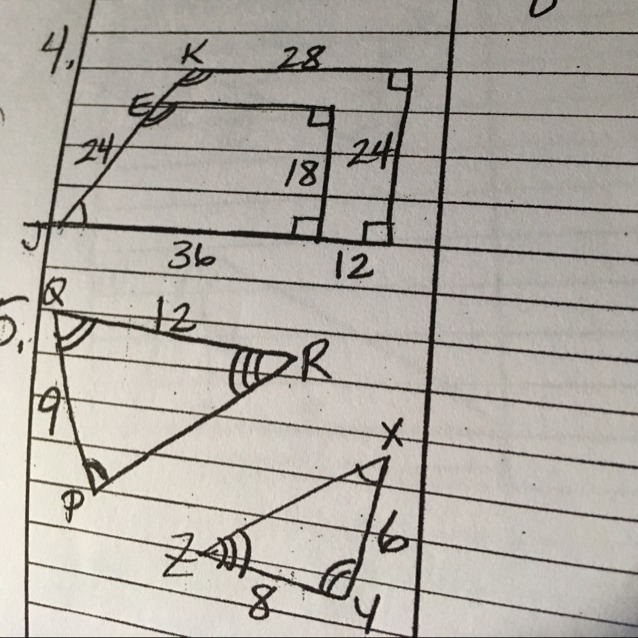 4.
K 28
E
24
18 24
J
36 12
Q
12
5.
R
9
X
P
Z
6
8 Y